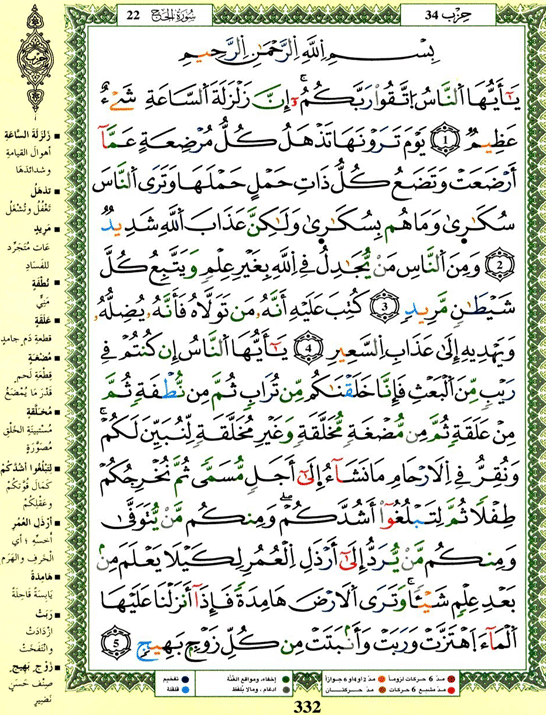 حِزْب 34
سُورَةُ الْحَجِّ 22
حزب
بِسْمِ اِللَّهِ اِلرَّحْمَٰنِ اِلرَّحِيمِ
يَٰٓأَيُّهَا اَلنَّاسُ اُتَّقُواْ رَبَّكُمُۥٓ إِنَّ زَلْزَلَةَ اَلسَّاعَةِ شَےْءٌ
عَظِيمٌ 1 يَوْمَ تَرَوْنَهَا تَذْهَلُ كُلُّ مُرْضِعَةٍ عَمَّآ
أَرْضَعَتْ وَتَضَعُ كُلُّ ذَاتِ حَمْلٍ حَمْلَهَا وَتَرَى اَلنَّاسَ
سُكَٰرِىٰ وَمَا هُم بِسُكَٰرِىٰ وَلَٰكِنَّ عَذَابَ اَللَّهِ شَدِيدٌ
2 وَمِنَ اَلنَّاسِ مَنْ يُّجَٰدِلُ فِے اِللَّهِ بِغَيْرِ عِلْمٍ وَيَتَّبِعُ كُلَّ
شَيْطَٰنٍ مَّرِيدٍ 3 كُتِبَ عَلَيْهِ أَنَّهُۥ مَن تَوَلَّاهُ فَأَنَّهُۥ يُضِلُّهُۥ
وَيَهْدِيهِ إِلَىٰ عَذَابِ اِلسَّعِيرِ 4 يَٰٓأَيُّهَا اَلنَّاسُ إِن كُنتُمْ فِے
رَيْبٍ مِّنَ اَلْبَعْثِ فَإِنَّا خَلَقْنَٰكُم مِّن تُرَابٍ ثُمَّ مِن نُّطْفَةٍ ثُمَّ
مِنْ عَلَقَةٍ ثُمَّ مِن مُّضْغَةٍ مُّخَلَّقَةٍ وَغَيْرِ مُخَلَّقَةٍ لِّنُبَيِّنَ لَكُمْ
وَنُقِرُّ فِے اِلَارْحَامِ مَا نَشَآءُ إِلَىٰٓ أَجَلٍ مُّسَمّىً ثُمَّ نُخْرِجُكُمْ
طِفْلًا ثُمَّ لِتَبْلُغُوٓاْ أَشُدَّكُمْ وَمِنكُم مَّنْ يُّتَوَفَّىٰ
وَمِنكُم مَّنْ يُّرَدُّ إِلَىٰٓ أَرْذَلِ اِلْعُمُرِ لِكَيْلَا يَعْلَمَ مِنۢ
بَعْدِ عِلْمٍ شَيْـٔاً وَتَرَى اَلَارْضَ هَامِدَةً فَإِذَآ أَنزَلْنَا عَلَيْهَا
اَلْمَآءَ اَهْتَزَّتْ وَرَبَتْ وَأَنۢبَتَتْ مِن كُلِّ زَوْجٍ بَهِيجٍ 5
■ زَلْزَلَةَ السَّاعَةِ
أهوالَ القيامةِ
وشدائدَها
■ تَذْهَلُ
تَغْفُلُ وتُشْغَلُ
■ مَرِيدٍ
عَاتٍ مُتَجَرِّد
للفَسَادِ
■ نُطْفَةٍ
مَنِيٍّ
■ عَلَقَةٍ
قِطعةِ دَمٍ جامدٍ
■ مُضْغَةٍ
قِطْعَةِ لَحمٍ
قَدْرَ ما يُمْضَغُ
■ مُخَلَّقَةٍ
مُسْتَبِينَةِ الْخَلْقِ
مُصَوَّرَةٍ
■ لِتَبْلُغُوا أَشُدَّكُمْ
كَمَالَ قُوَّتِكُمْ
وعَقْلِكُمْ
■ أَرْذَلِ العُمُرِ
أَخَسِّهِ؛ أي
الْخَرَفِ والهَرَمِ
■ هَامِدَةً
يَابِسَةً قَاحِلَةً
■ رَبَتْ
ازْدَادَتْ
وانْتَفَخَتْ
■ زَوْجٍ بَهِيجٍ
صِنْفٍ حَسَنٍ
نَضِيرٍ
مدّ 6 حركات لزوماً مدّ 2 أو 4 أو 6 جوازاً إخفاء، ومواقع الغُنَّة تفخيم
مدّ مشبع 6 حركات مدّ حركتان إدغام، وما لا يُلفَظ قلقلة
332